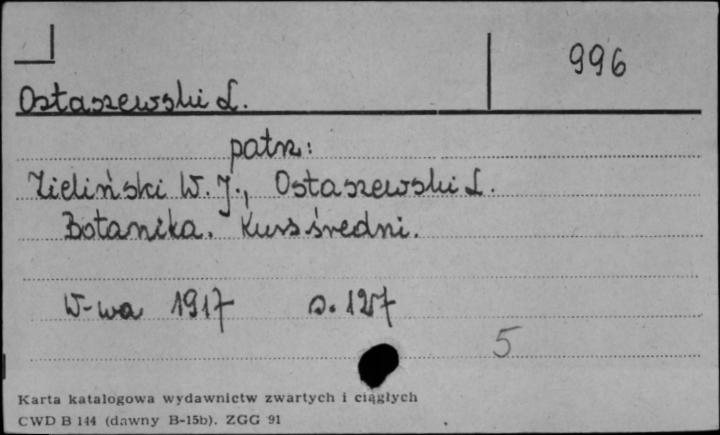 996
Ostaszewski L.
patrz:
Zieliński W. J., Ostaszewski L.
Botanika. Kurs średni.
W-wa 1917 s. 127
5
Karta katalogowa wydawnictw zwartych i ciągłych
CWD B 144 (dawny B-15b). ZGG 91